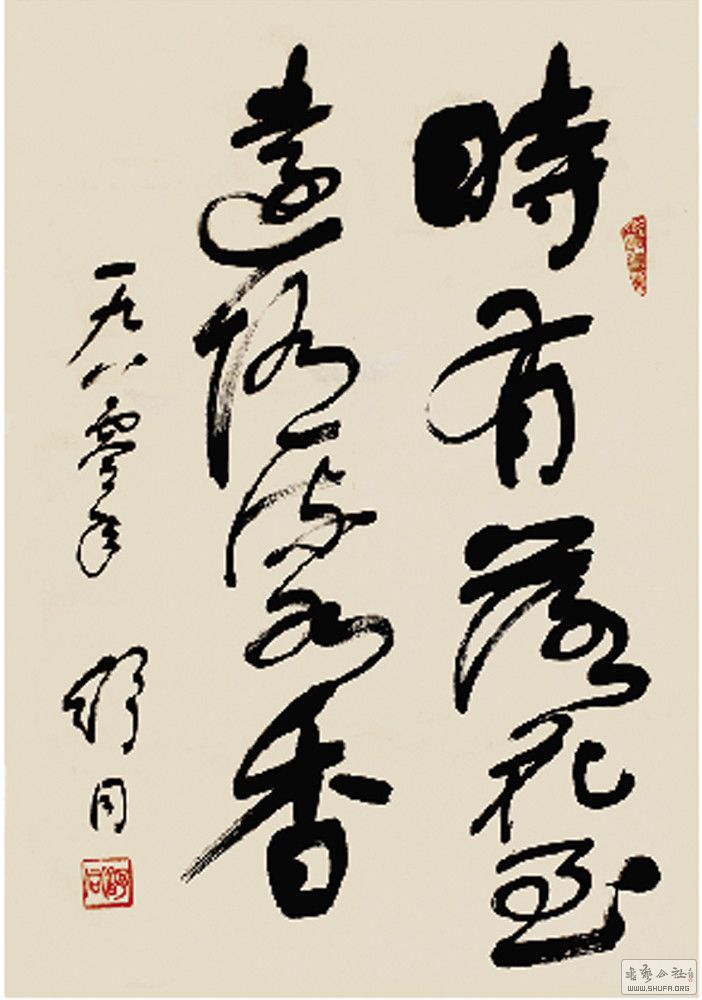 時有落花至
遠隨流水香
一九八零年 舒同
舒同
WWW.SHUFA.ORG